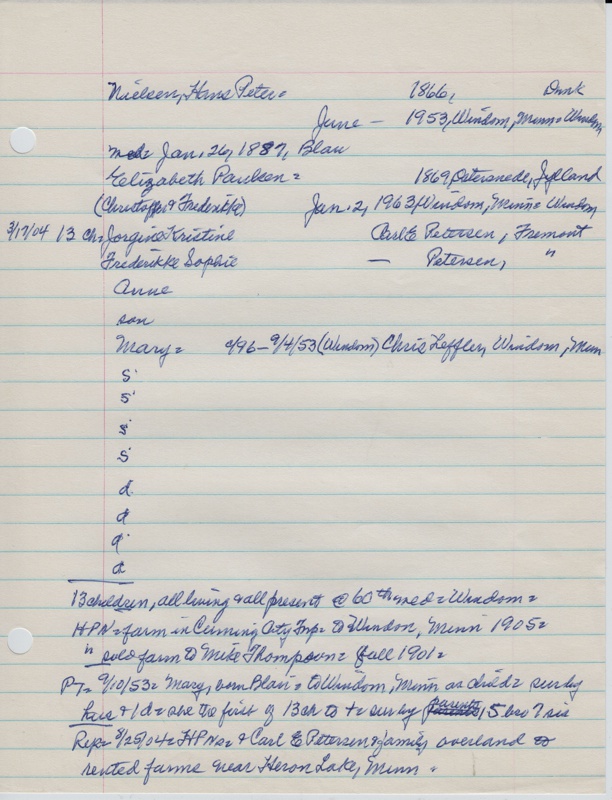 Nielsen, Hans Peter= 1866, Dmk
June — 1953, Windom, Minn= Windom
md= Jan. 26, 1887, Blair
Elizabeth Paulsen= 1869, Jylland
(Christoffer & Frederikke) Jan. 2, 1963, Windom, Minn= Windom
3/17/04 13 Ch= Jorgine Kristine Carl E Petersen, Fremont
Frederikke Sophie — Petersen, "
Anne
son
Mary= 4/96 – 9/4/53 (Windom) Chris Leffler, Windom, Minn
s
s
s
s
d
d
d
d
13 children, all living & all present @ 60th wed= Windom=
HPN= farm in Cuming City Tnp= to Windom, Minn 1905=
" sold farm to Mike Thompson= fall 1901=
PT= 9/10/53= Mary, born Blair= to Windom, Minn as child= surv by
hus & 1 d= she the first of 13 ch to += surv by parents, 5 bro 7 sis
Rep= 3/25/04= HPNs= & Carl E Petersen & family overland to
rented farms near Heron Lake, Minn=